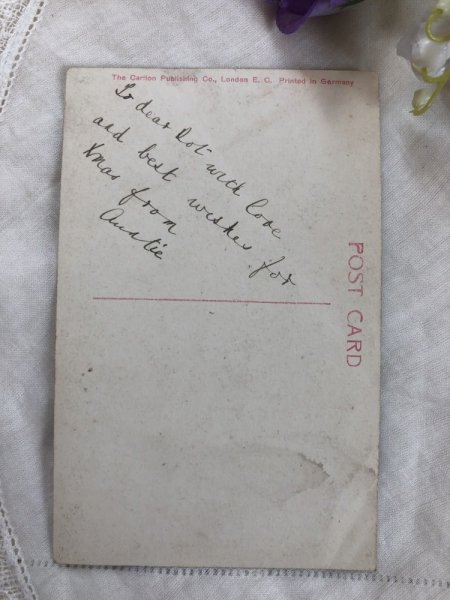 The Carlton Publishing Co., London E. C. Printed in Germany
To dear Dot with love
and best wishes for
Xmas from
Auntie
POST CARD